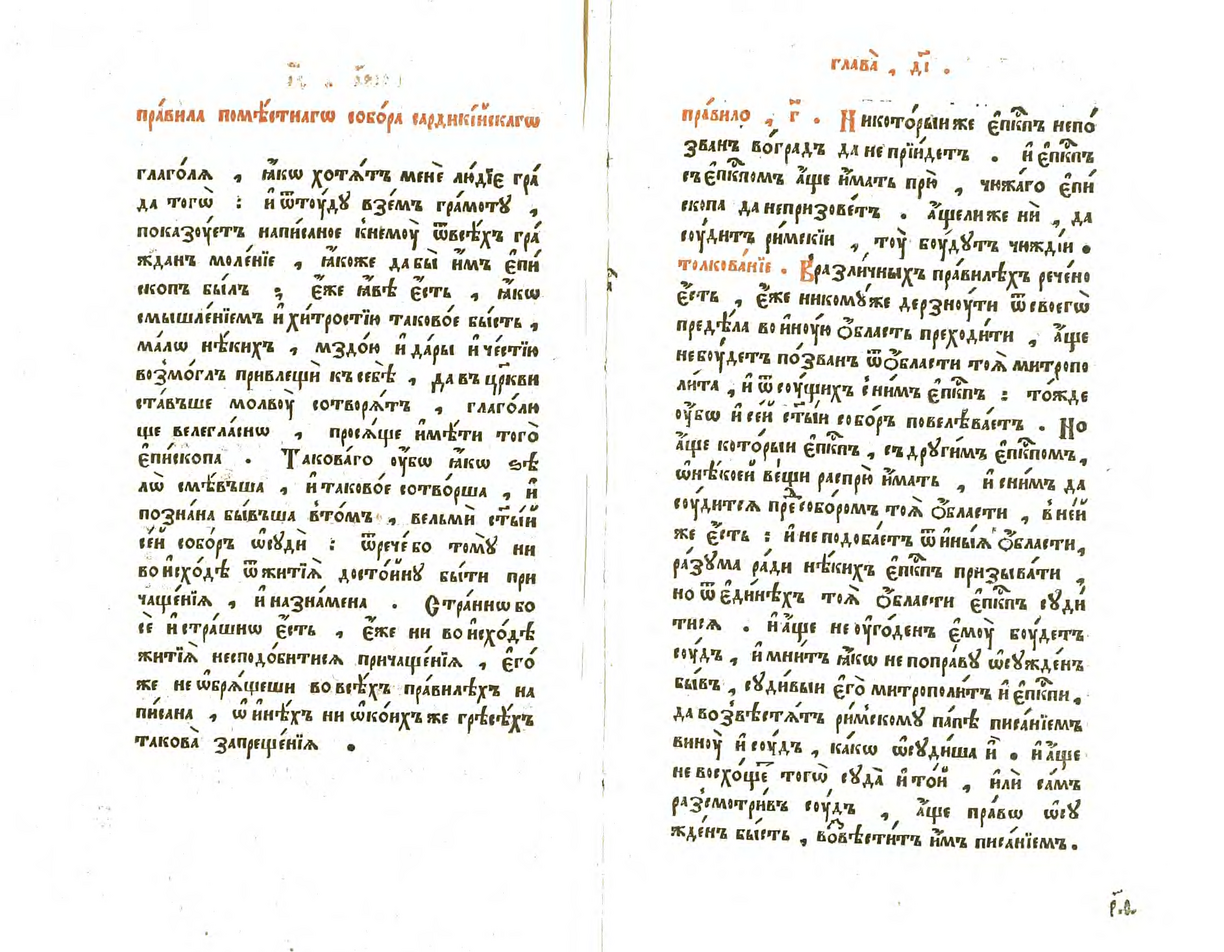 пра́вила помѣ́стнагѡ собо́ра сардикі́йскагѡ
глаго́лѧ , ꙗ҆́кѡ хотѧ́тъ менѐ лю́дїе гра́
да тогѡ̀ : и҆ ѿтꙋ́дꙋ взе́мъ гра́мотꙋ ,
показꙋ́етъ напи́саное кнемꙋ̀ ѿвсѣ́хъ гра́
жданъ моле́нїе , ꙗ҆́коже дабы̀ и҆̀мъ є҆пи́
скопъ бы́лъ ; є҆́же ꙗ҆́вѣ є҆́сть , ꙗ҆́кѡ
смышле́нїемъ и҆ хи́тростїю таково́е бы́сть ,
ма́лѡ нѣ́кихъ , мздо́ю и҆ да́ры и҆ че́стїю
возмо́глъ привлещѝ къ себѣ̀ , да въ цр҃кви
ста́въше молвꙋ̀ сотворѧ́тъ , глаго́лю
ще велегла́снѡ , просѧ́ще и҆мѣ́ти того̀
є҆пи́скопа . Такова́го ᲂу҆́бѡ ꙗ҆́кѡ ѕѣ
лѡ̀ смѣ́въша , и҆ таково́е сотво́рша , и҆
позна́на бы́въша в̾то́мъ , вельмѝ ст҃ы́й
се́й собо́ръ ѡ҆сꙋдѝ : ѿрече́ бо томꙋ̀ ни
во и҆схо́дѣ ѿ житїѧ̀ досто́йнꙋ бы́ти при
чаще́нїѧ , и҆ назна́мена . Стра́ннѡ бо
сѐ и҆ стра́шнѡ є҆́сть , є҆́же ни во и҆схо́дѣ
житїѧ̀ несподо́битисѧ причаще́нїѧ , є҆го́
же не ѡ҆брѧ́щеши во всѣ́хъ пра́вилѣхъ на
пи́сана , ѡ҆ и҆нѣ́хъ ни ѡ҆ ко́ихъже грѣсѣ́хъ
такова̀ запреще́нїѧ .
глава̀ , д҃і .
пра́вило , г҃ . Никото́рыи же є҆пⷭ҇кпъ непо́
званъ во гра́дъ да не прїи́детъ . и҆ є҆пⷭ҇кпъ
съ є҆пⷭ҇кпомъ а҆́ще и҆́мать прю̀ , чюжа́го є҆пи́
скопа да непризове́тъ . а҆́щели же нѝ , да
сꙋ́дитъ ри́мскїи , тꙋ̀ бꙋ́дꙋтъ чюждїи .
толкова́нїе . В разли́чныхъ пра́вилѣхъ рече́но
є҆́сть , є҆́же никомꙋ́же дерзнꙋ́ти ѿ своегѡ̀
предѣ́ла во и҆нꙋ́ю ѻ҆́бласть преходи́ти , а҆́ще
не бꙋ́детъ по́званъ ѿ ѻ҆́бласти тоѧ̀ митропо
ли́та , и҆ ѿ сꙋ́щихъ с̾ ни́мъ є҆пⷭ҇кпъ : то́жде
ᲂу҆́бѡ и҆ се́й ст҃ы́и собо́ръ повелѣва́етъ . Но
а҆́ще кото́рыи є҆пⷭ҇кпъ , съ дрꙋги́мъ є҆пⷭ҇кпомъ ,
ѡ҆ нѣ́коей ве́щи распрю̀ и҆́мать , и҆ сни́мъ да
сꙋ́дитсѧ преⷣ собо́ромъ тоѧ̀ ѻ҆́бласти , в не́й
же є҆́сть : и҆ не подоба́етъ ѿ и҆ны́ѧ ѻ҆́бласти ,
ра́зꙋма ра́ди нѣ́кихъ є҆пⷭ҇кпъ призыва́ти ,
но ѿ є҆ди́нѣхъ тоѧ̀ ѻ҆́бласти є҆пⷭ҇кпъ сꙋди́
тисѧ . и҆ а҆́ще не ᲂу҆го́денъ є҆мꙋ̀ бꙋ́детъ
сꙋ́дъ , и҆ мни́тъ ꙗ҆́кѡ не попра́вꙋ ѡ҆сꙋжде́нъ
бы́въ , сꙋди́выи є҆го̀ митрополи́тъ и҆ є҆пⷭ҇кпи ,
да возвѣстѧ́тъ ри́мскомꙋ па́пѣ писа́нїемъ
винꙋ̀ и҆ сꙋ́дъ , ка́кѡ ѡ҆сꙋди́ша и҆̀ . и҆ а҆́ще
не восхо́щеⷮ тогѡ̀ сꙋда̀ и҆ то́й , и҆лѝ са́мъ
разсмотри́въ сꙋ́дъ , а҆́ще пра́вѡ ѡ҆сꙋ
жде́нъ бы́сть , воⷥвѣсти́тъ и҆̀мъ писа́нїемъ .